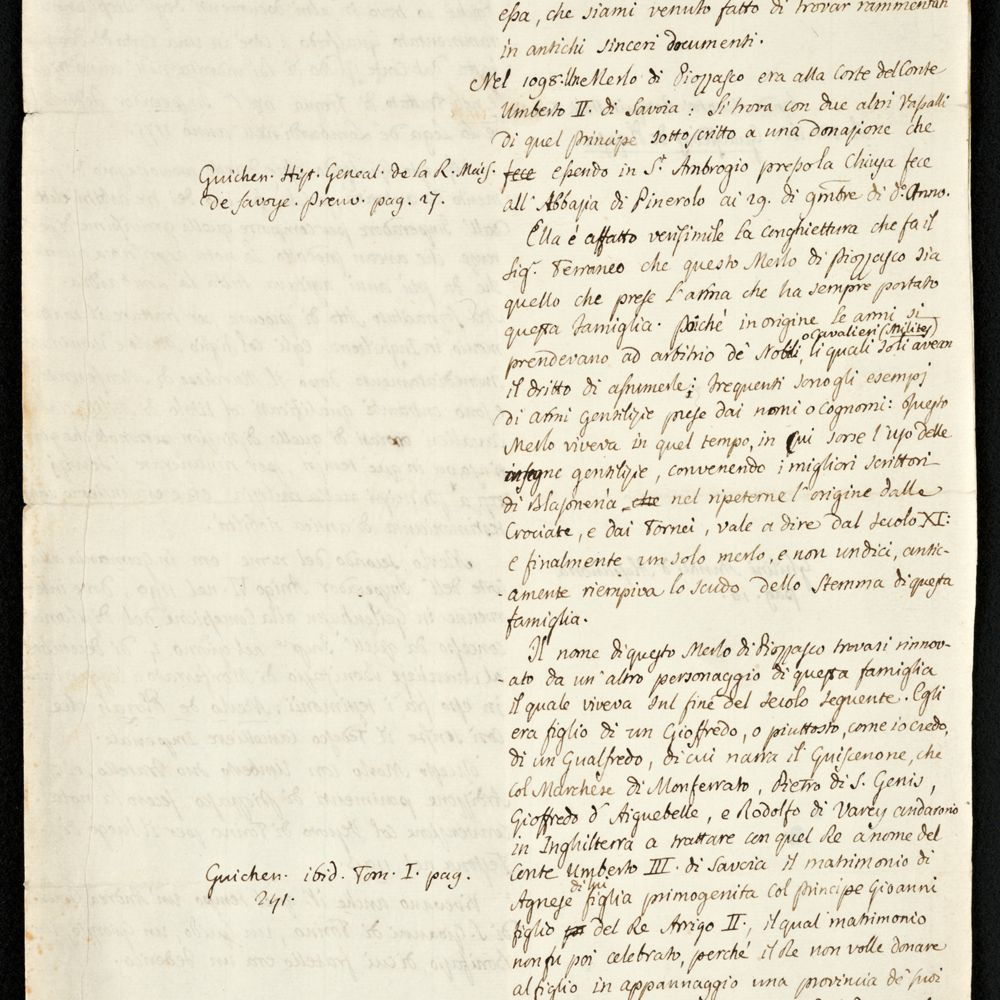 essa, che siami venuto fatto di trovar rammentati
in antichi sinceri documenti.
Nel 1098. Un Merlo di Piozzasco era alla Corte del Conte
Umberto II. di Savoia: Si trova con due altri Vassalli
di quel Principe sottoscritto a una donazione che
fece essendo in S. Ambrogio presso la Chiusa fece
all'Abbazia di Pinerolo ai 29. di 9mbre di d.o Anno.
Guichen. Hist. Geneal. de la R. Mais.
de Savoye. Preuv. pag. 27.
Ella è affatto verisimile la conghiettura che fa il
Sig.r Terraneo che questo Merlo di Piozzasco sia
quello che prese l'arma che ha sempre portato
questa famiglia. Poiché in origine le armi si
prendevano ad arbitrio de' Nobili, o Cavalieri (Milites) li quali soli avean
il dritto di assumerle; frequenti sono gli esempj
di armi gentilizie prese dai nomi o cognomi: Questo
Merlo viveva in quel tempo, in cui sorse l'uso delle
insegne gentilizie, convenendo i migliori scrittori
di Blasoneria che nel ripeterne l'origine dalle
Crociate, e dai Tornei, vale a dire dal secolo XI:
e finalmente un solo merlo, e non undici, antic-
amente riempiva lo scudo dello Stemma di questa
famiglia.
Il nome di questo Merlo di Piozzasco trovasi rinnov-
ato da un altro personaggio di questa famiglia
il quale viveva sul fine del secolo seguente. Egli
era figlio di un Gioffredo, o piuttosto, come io credo,
di un Gualfredo, di cui narra il Guiscenone, che
col Marchese di Monferrato, Pietro di S. Genis,
Gioffredo d'Aiguebelle, e Rodolfo di Varey andarono
in Inghilterra a trattare con quel Re a nome del
Conte Umberto III. di Savoia il matrimonio di
Agnese di lui figlia primogenita col Principe Gioanni
figlio del Re Arrigo II: il qual matrimonio
non fu poi celebrato, perché il Re non volle donare
al figlio in appannaggio una provincia de' suoi
Guichen. ibid. Tom. I. pag.
241.